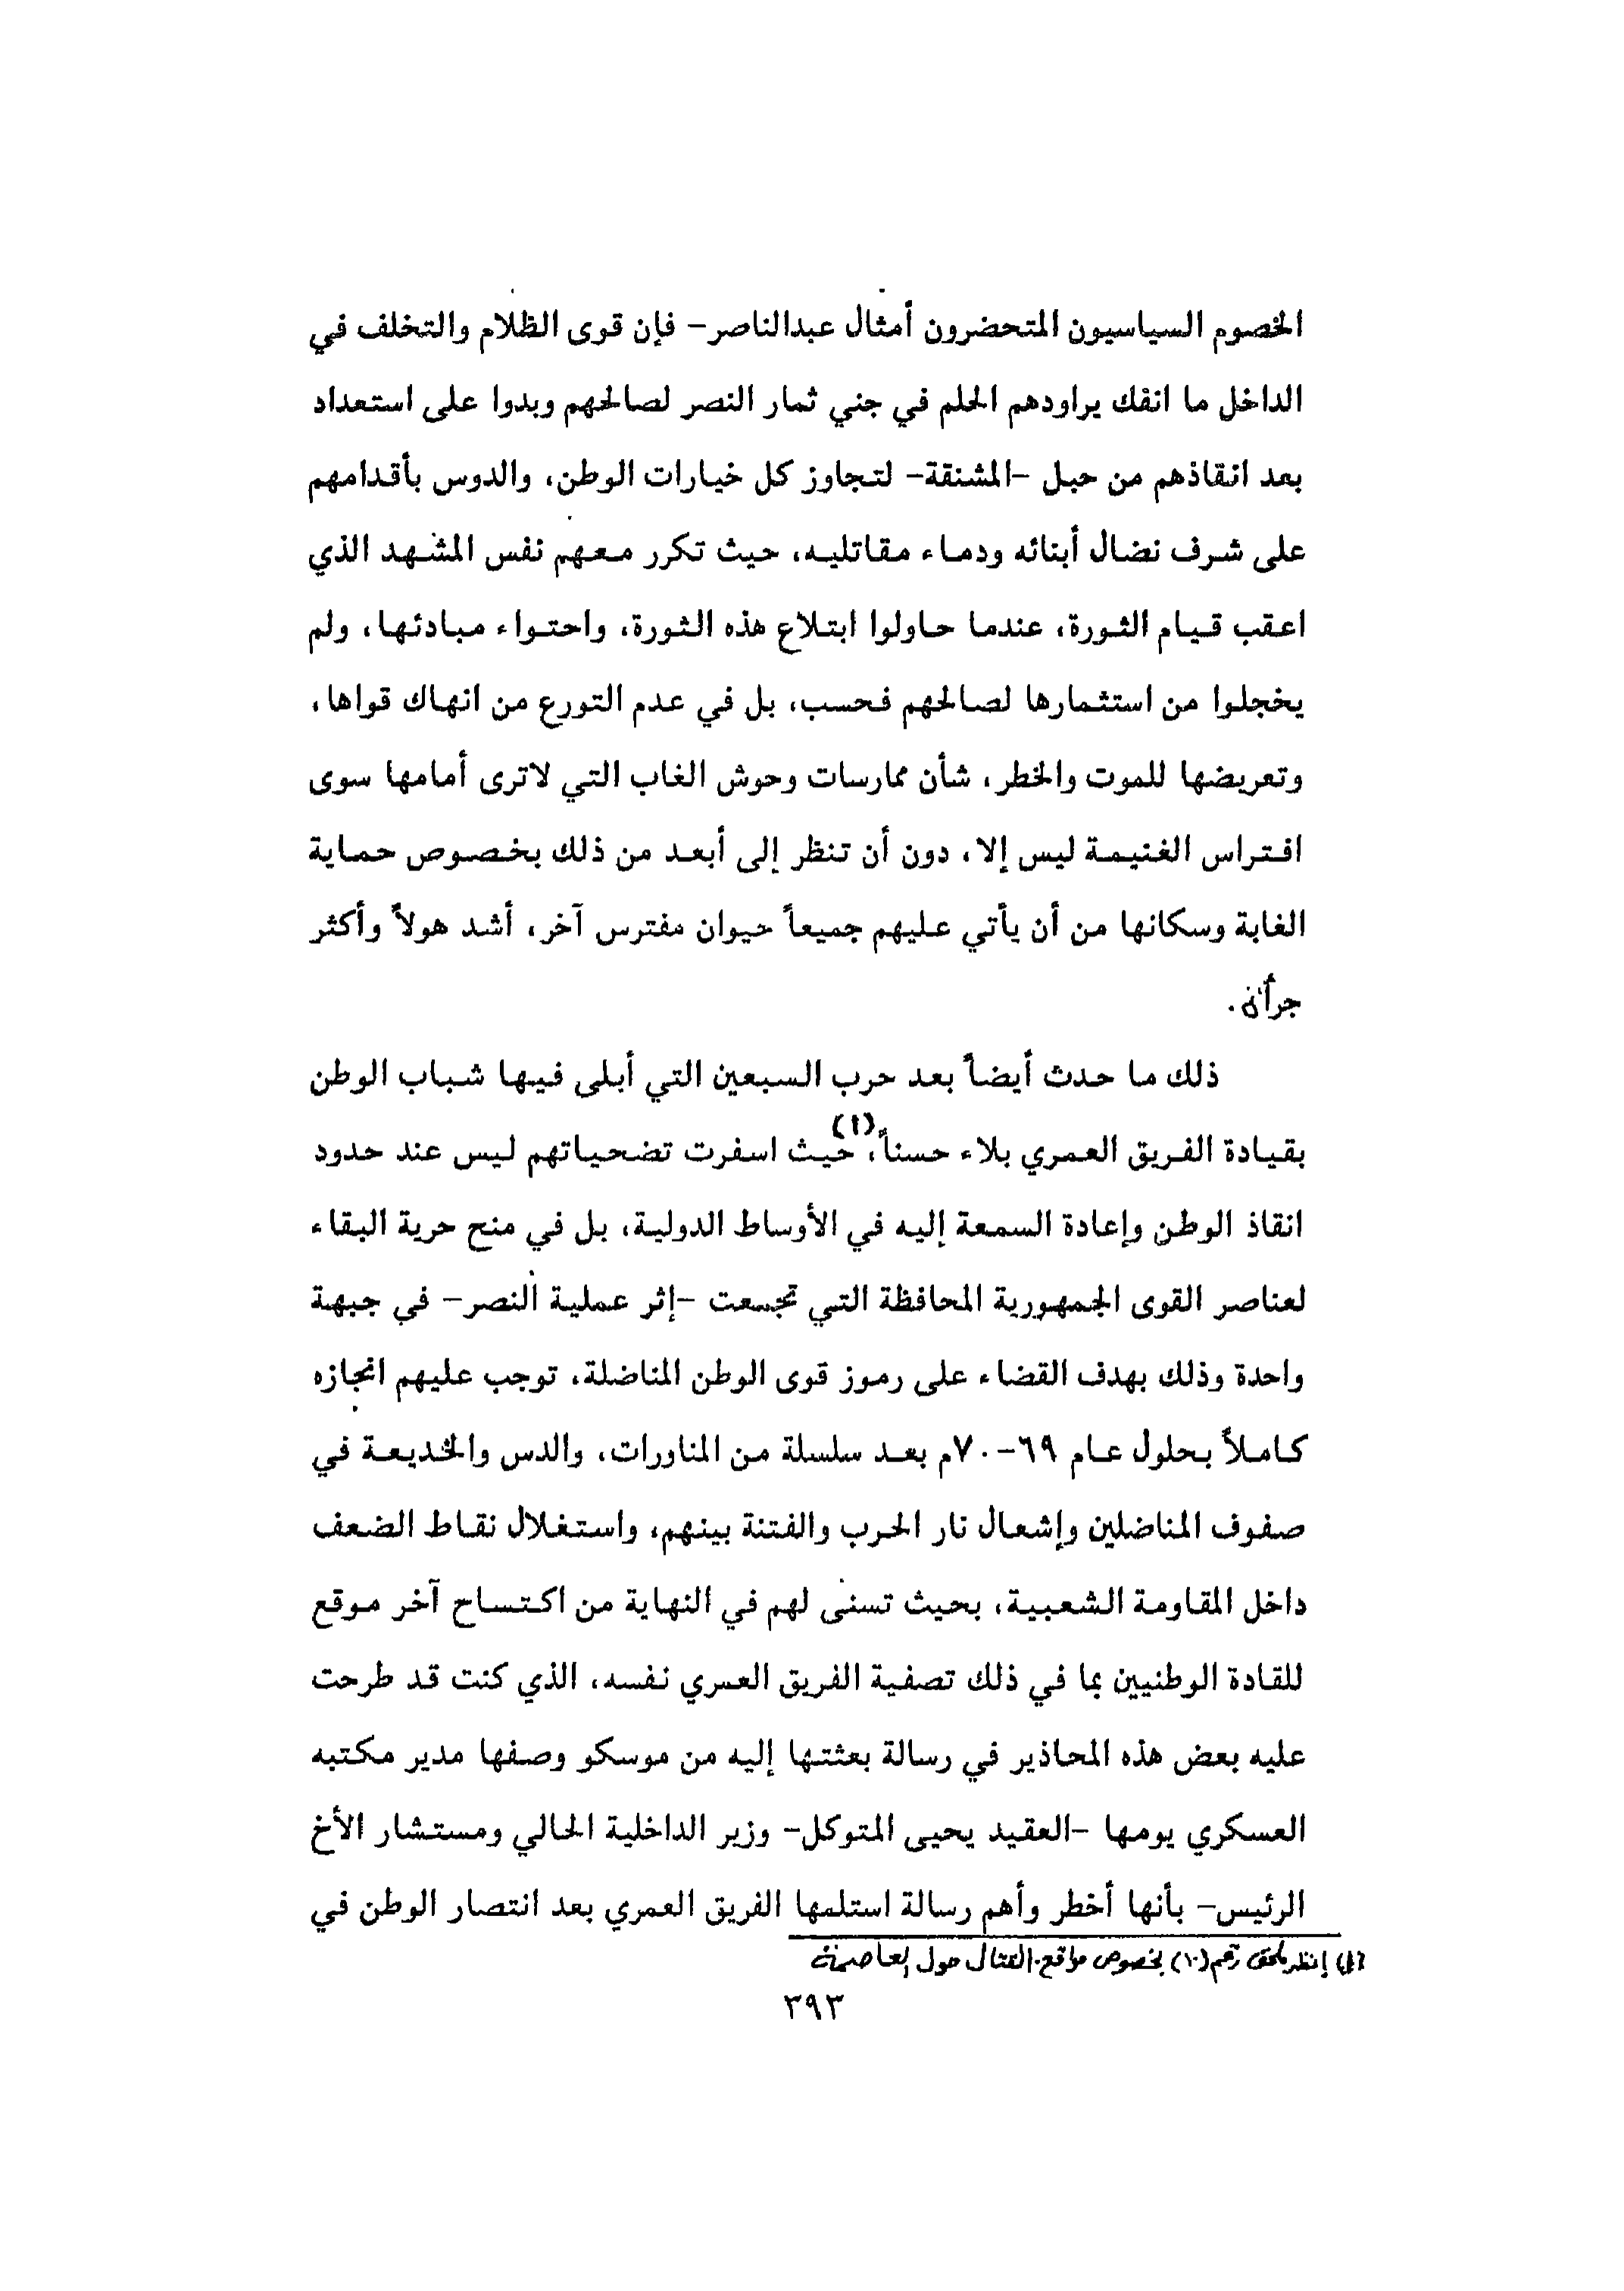 الخصوم السياسيون المتحضرون أمثال عبدالناصر- فإن قوى الظلام والتخلف في
الداخل ما انفك يراودهم الحلم في جني ثمار النصر لصالحهم وبدوا على استعداد
بعد انقاذهم من حبل -المشنقة- لتجاوز كل خيارات الوطن، والدوس بأقدامهم
على شرف نضال أبنائه ودماء مقاتليه، حيث تكرر معهم نفس المشهد الذي
اعقب قيام الثورة، عندما حاولوا ابتلاع هذه الثورة، واحتواء مبادئها، ولم
يخجلوا من استثمارها لصالحهم فحسب، بل في عدم التورع من انهاك قواها،
وتعريضها للموت والخطر، شأن ممارسات وحوش الغاب التي لاترى أمامها سوى
افتراس الغنيمة ليس إلا، دون أن تنظر إلى أبعد من ذلك بخصوص حماية
الغابة وسكانها من أن يأتي عليهم جميعاً حيوان مفترس آخر، أشد هولاً وأكثر
جرأة.
ذلك ما حدث أيضاً بعد حرب السبعين التي أبلى فيها شباب الوطن
بقيادة الفريق العمري بلاء حسناً،(١) حيث اسفرت تضحياتهم ليس عند حدود
انقاذ الوطن وإعادة السمعة إليه في الأوساط الدولية، بل في منح حرية البقاء
لعناصر القوى الجمهورية المحافظة التي تجمعت -إثر عملية النصر- في جبهة
واحدة وذلك بهدف القضاء على رموز قوى الوطن المناضلة، توجب عليهم انجازه
كاملاً بحلول عام ٦٩-٧٠م بعد سلسلة من المناورات، والدس والخديعة في
صفوف المناضلين وإشعال نار الحرب والفتنة بينهم، واستغلال نقاط الضعف
داخل المقاومة الشعبية، بحيث تسنى لهم في النهاية من اكتساح آخر موقع
للقادة الوطنيين بما في ذلك تصفية الفريق العمري نفسه، الذي كنت قد طرحت
عليه بعض هذه المحاذير في رسالة بعثتها إليه من موسكو وصفها مدير مكتبه
العسكري يومها -العقيد يحيى المتوكل- وزير الداخلية الحالي ومستشار الأخ
الرئيس- بأنها أخطر وأهم رسالة استلمها الفريق العمري بعد انتصار الوطن في
(١) إنظر ملحق رقم (١٠) بخصوص مواقع القتال حول العاصمة
٣٩٣